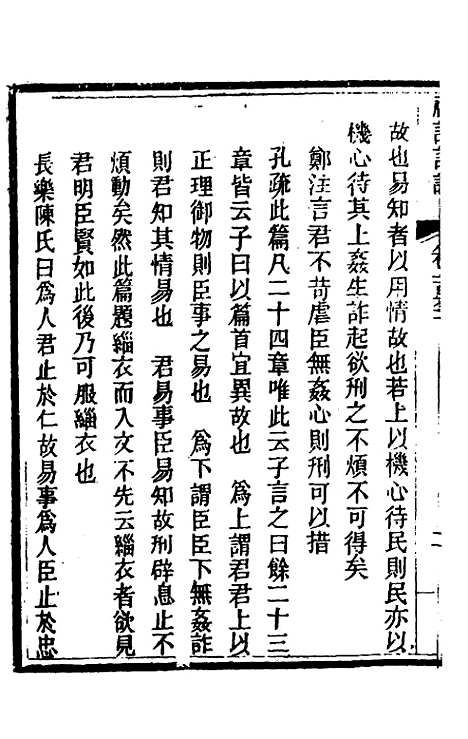 故也易知者以用情故也若上以機心待民則民亦以
機心待其上姦生詐起欲刑之不煩不可得矣
鄭注言君不苛虐臣無姦心則刑可以措
孔疏此篇凡二十四章唯此云子言之曰餘二十三
章皆云子曰以篇首宜異故也　為上謂君君上以
正理御物則臣事之易也　為下謂臣臣下無姦詐
則君知其情易也　君易事臣易知故刑辟息止不
煩動矣然此篇題緇衣而入文不先云緇衣者欲見
君明臣賢如此後乃可服緇衣也
長樂陳氏曰為人君止於仁故易事為人臣止於忠